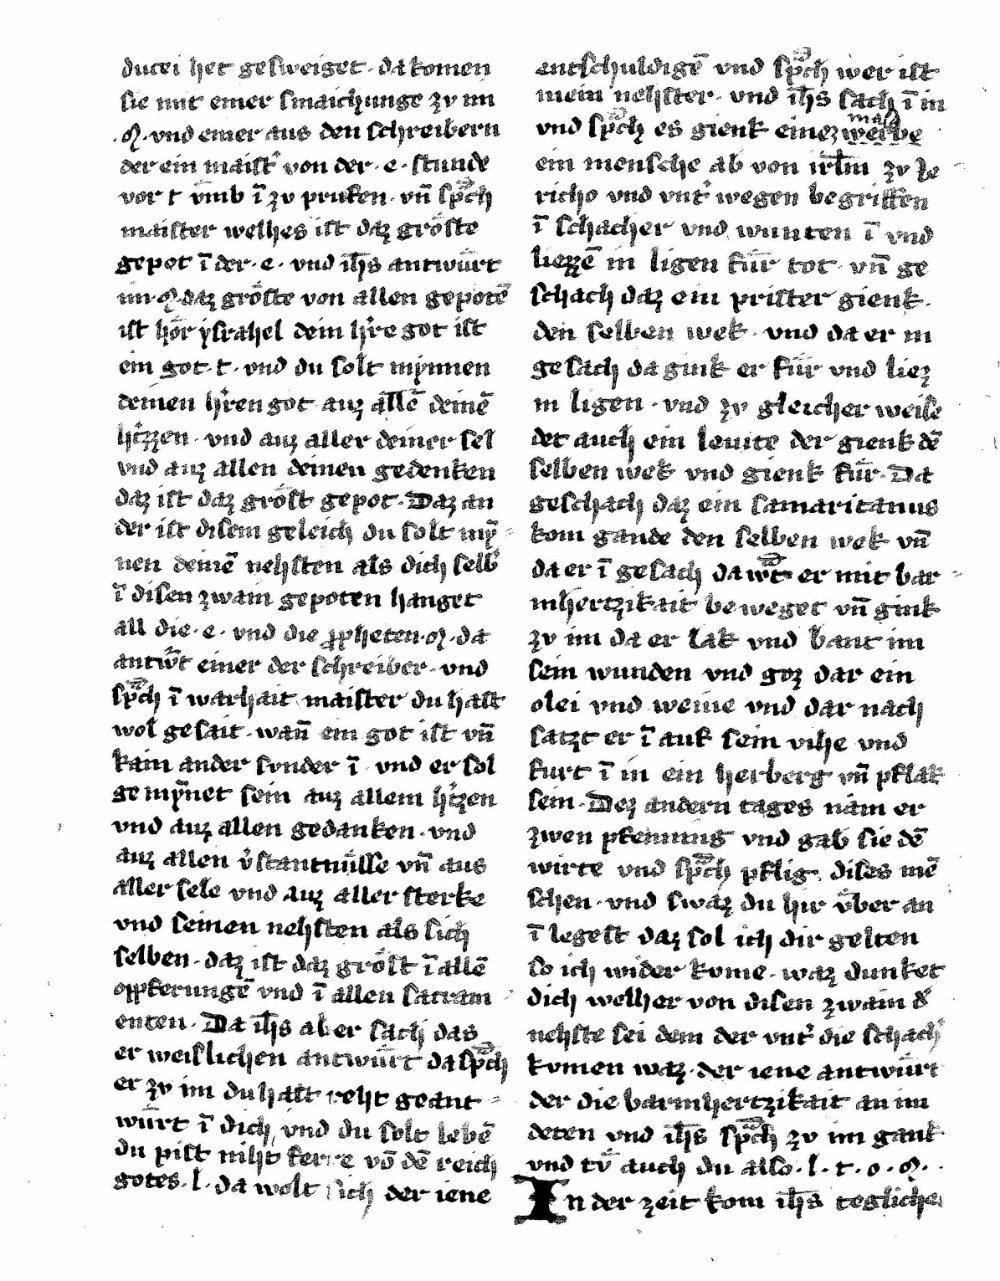 ducei het gesweiget · da komen
sie mit einer smaichunge zv im
· M · vnd einer aus den schreibern
der ein maist᾽ von der · e · stunde
vor t v̄mb ī zv prufen · vn̄ sp͛ch
maister welhes ist daz gröste
gepot ī der · e · vnd ih̄s antwürt
im · M · daz gröste von allen gepotē
ist hör ẏsrahel dein h᾽re got ist
ein got · t · vnd du solt mẏnnen
deinen h᾽ren got auz allē deinē
h᾽tzzen · vnd auz aller deiner sel
vnd auz allen deinen gedenken
daz ist daz gröst gepot · Daz an
der ist disem geleich du solt mẏ
nen deinē nehsten als dich selb᾽
ī disen zwain gepoten hanget
all die · e · vnd die ꝓpheten · M · da
antw᾽t einer der schreiber · vnd
sp͛ch ī warhait maister du hast
wol gesait · wan̄ ein got ist vn̄
kain ander svnder ī · vnd er sol
gemẏnet sein auz allem h᾽tzen
vnd auz allen gedanken · vnd
auz allen v᾽stantnüsse vn̄ aus
aller sele vnd auz aller sterke
vnd seinen nehsten als sich
selben · daz ist daz gröst ī allē
oppferungē vnd ī allen sacram
enten · Da ih̄s aber sach das
er weislichen antwürt da sp͛ch
er zv im du hast reht geant
würt ī dich, vnd du solt lebē
du pist niht ferre vō dē reich
gotes · l · da wolt sich der iene
entschuldigē vnd sp͛ch wer ist
mein nehster · vnd ih̄s sach ī in
vnd sp͛ch es gienk einez weibe man
ein mensche ab von irl̄m zv ie
richo vnd vnt᾽ wegen begriffen
ī schacher vnd wunten ī vnd
liezzē in ligen für tot · vn̄ ge
schach daz ein prister gienk ·
den selben wek · vnd da er in
gesach da gink er für vnd liez
in ligen · vnd zv gleicher weise
det auch ein leuite der gienk dē
selben wek vnd gienk für · Da
geschach daz ein samaritanus
kom gande den selben wek vn̄
da er ī gesach da w᾽t er mit bar
mhertzikait beweget vn̄ gink
zv im da er lak vnd bant im
sein wunden vnd goz dar ein
olei vnd weine vnd dar nach
satzt er ī auf sein vihe vnd
furt ī in ein herberg vn̄ pflak
sein · Dez andern tages nam er
zwen pfenning vnd gab sie dē
wirte vnd sp͛ch pflig dises mē
schen · vnd swaz du hir über an
ī legest daz sol ich dir gelten
so ich wider kvme · waz dunket
dich welher von disen zwain d᾽
nehste sei dem der vnt᾽ die schach᾽
kvmen waz · der iene antwürt
der die barmhertzikait an im
deten vnd ih̄s sp͛ch zv im gank
vnd tv̊ auch du also · l · t · o · M ·
In der zeit kom ih̄s teglichen